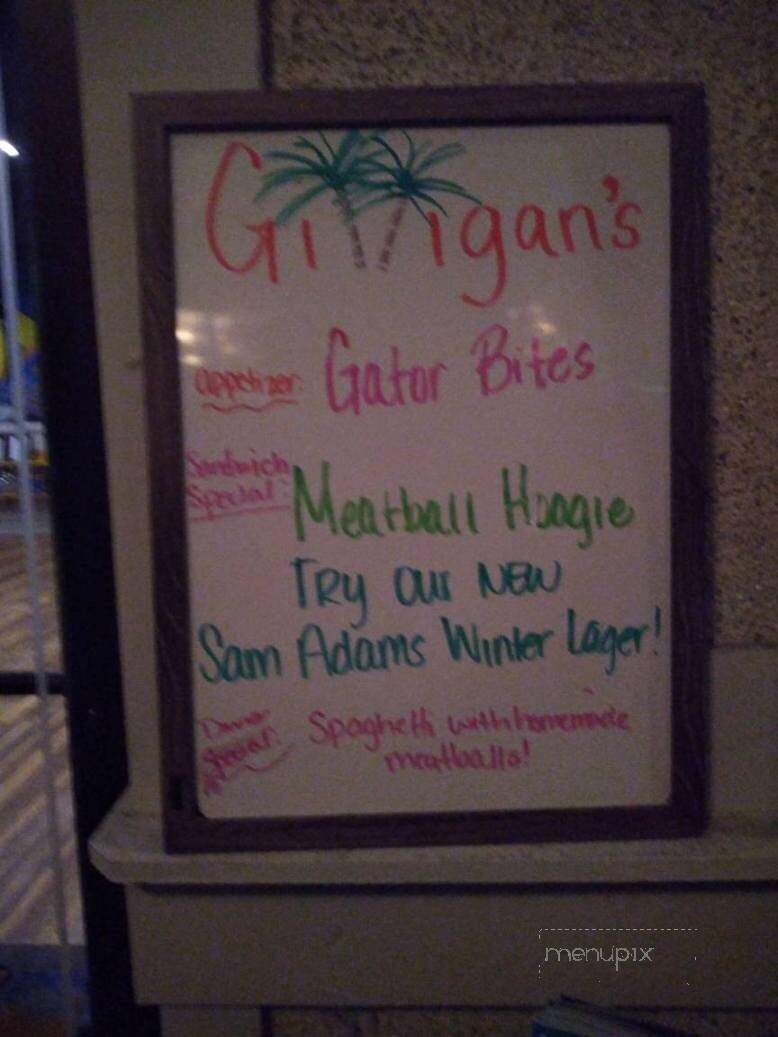 Gilligan's
appetizer: Gator Bites
Sandwich
Special: Meatball Hoagie
Try our NEW
Sam Adams Winter Lager!
Dinner
Special: Spaghetti with homemade
meatballs!
menupix